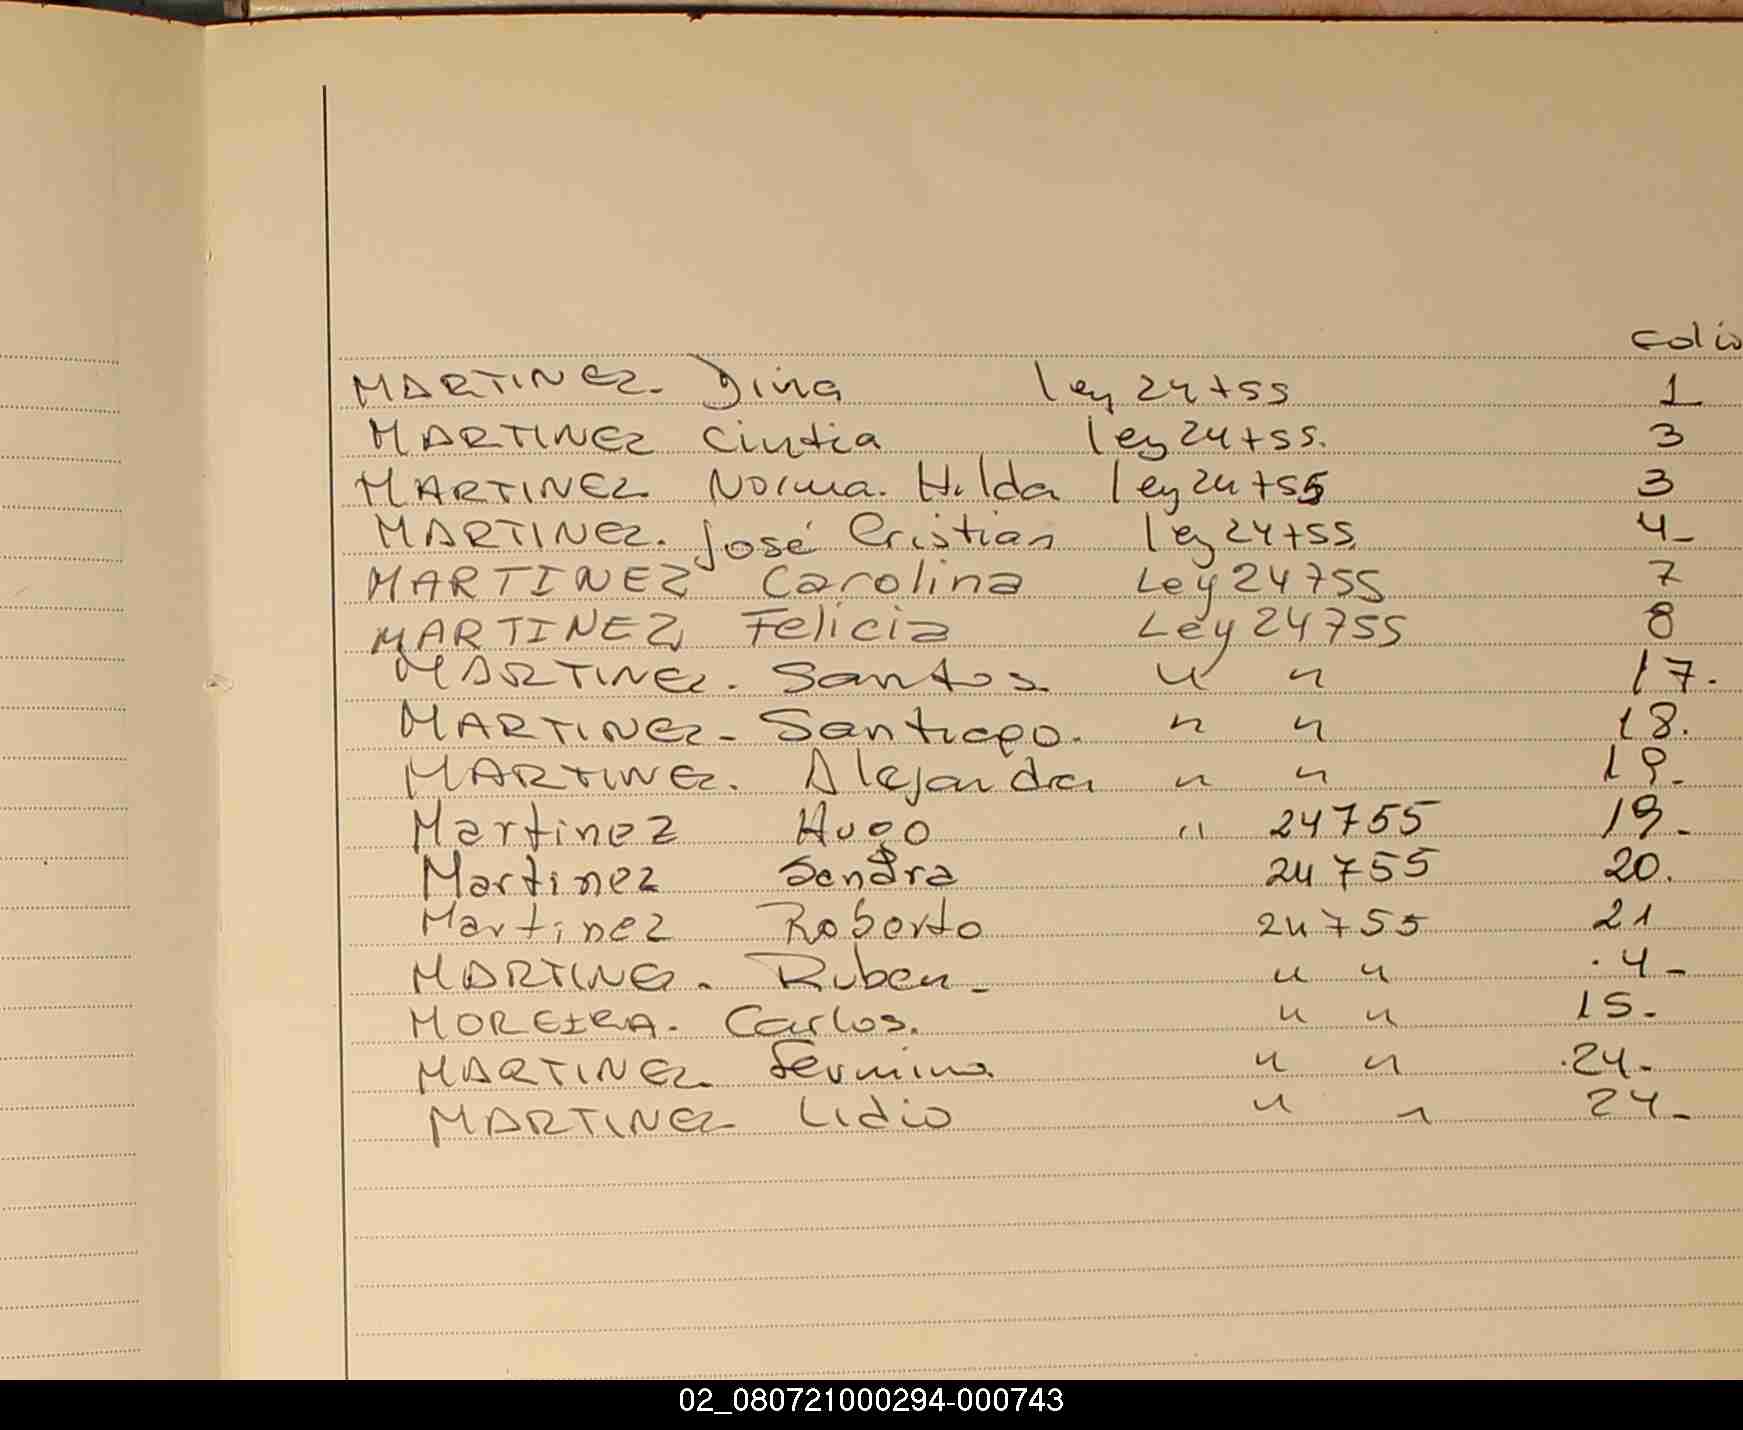 Folio
MARTINEZ. Dina ley 24755 1
MARTINEZ Cintia ley 24755. 3
MARTINEZ Norma. Hilda ley 24755 3
MARTINEZ. José Cristian ley 24755. 4-
MARTINEZ Carolina Ley 24755 7
MARTINEZ Felicia Ley 24755 8
MARTINEZ. Santos. " " 17.
MARTINEZ- Santiago. " " 18.
MARTINEZ. Alejandra " " 19.
Martinez Hugo " 24755 19.
Martinez Sandra 24755 20.
Martinez Roberto 24755 21
MARTINEZ. Ruben- " " 4-
MOREIRA. Carlos. " " 15.
MARTINEZ Fermina " " 24.
MARTINEZ Lidio " " 24-
02_080721000294-000743